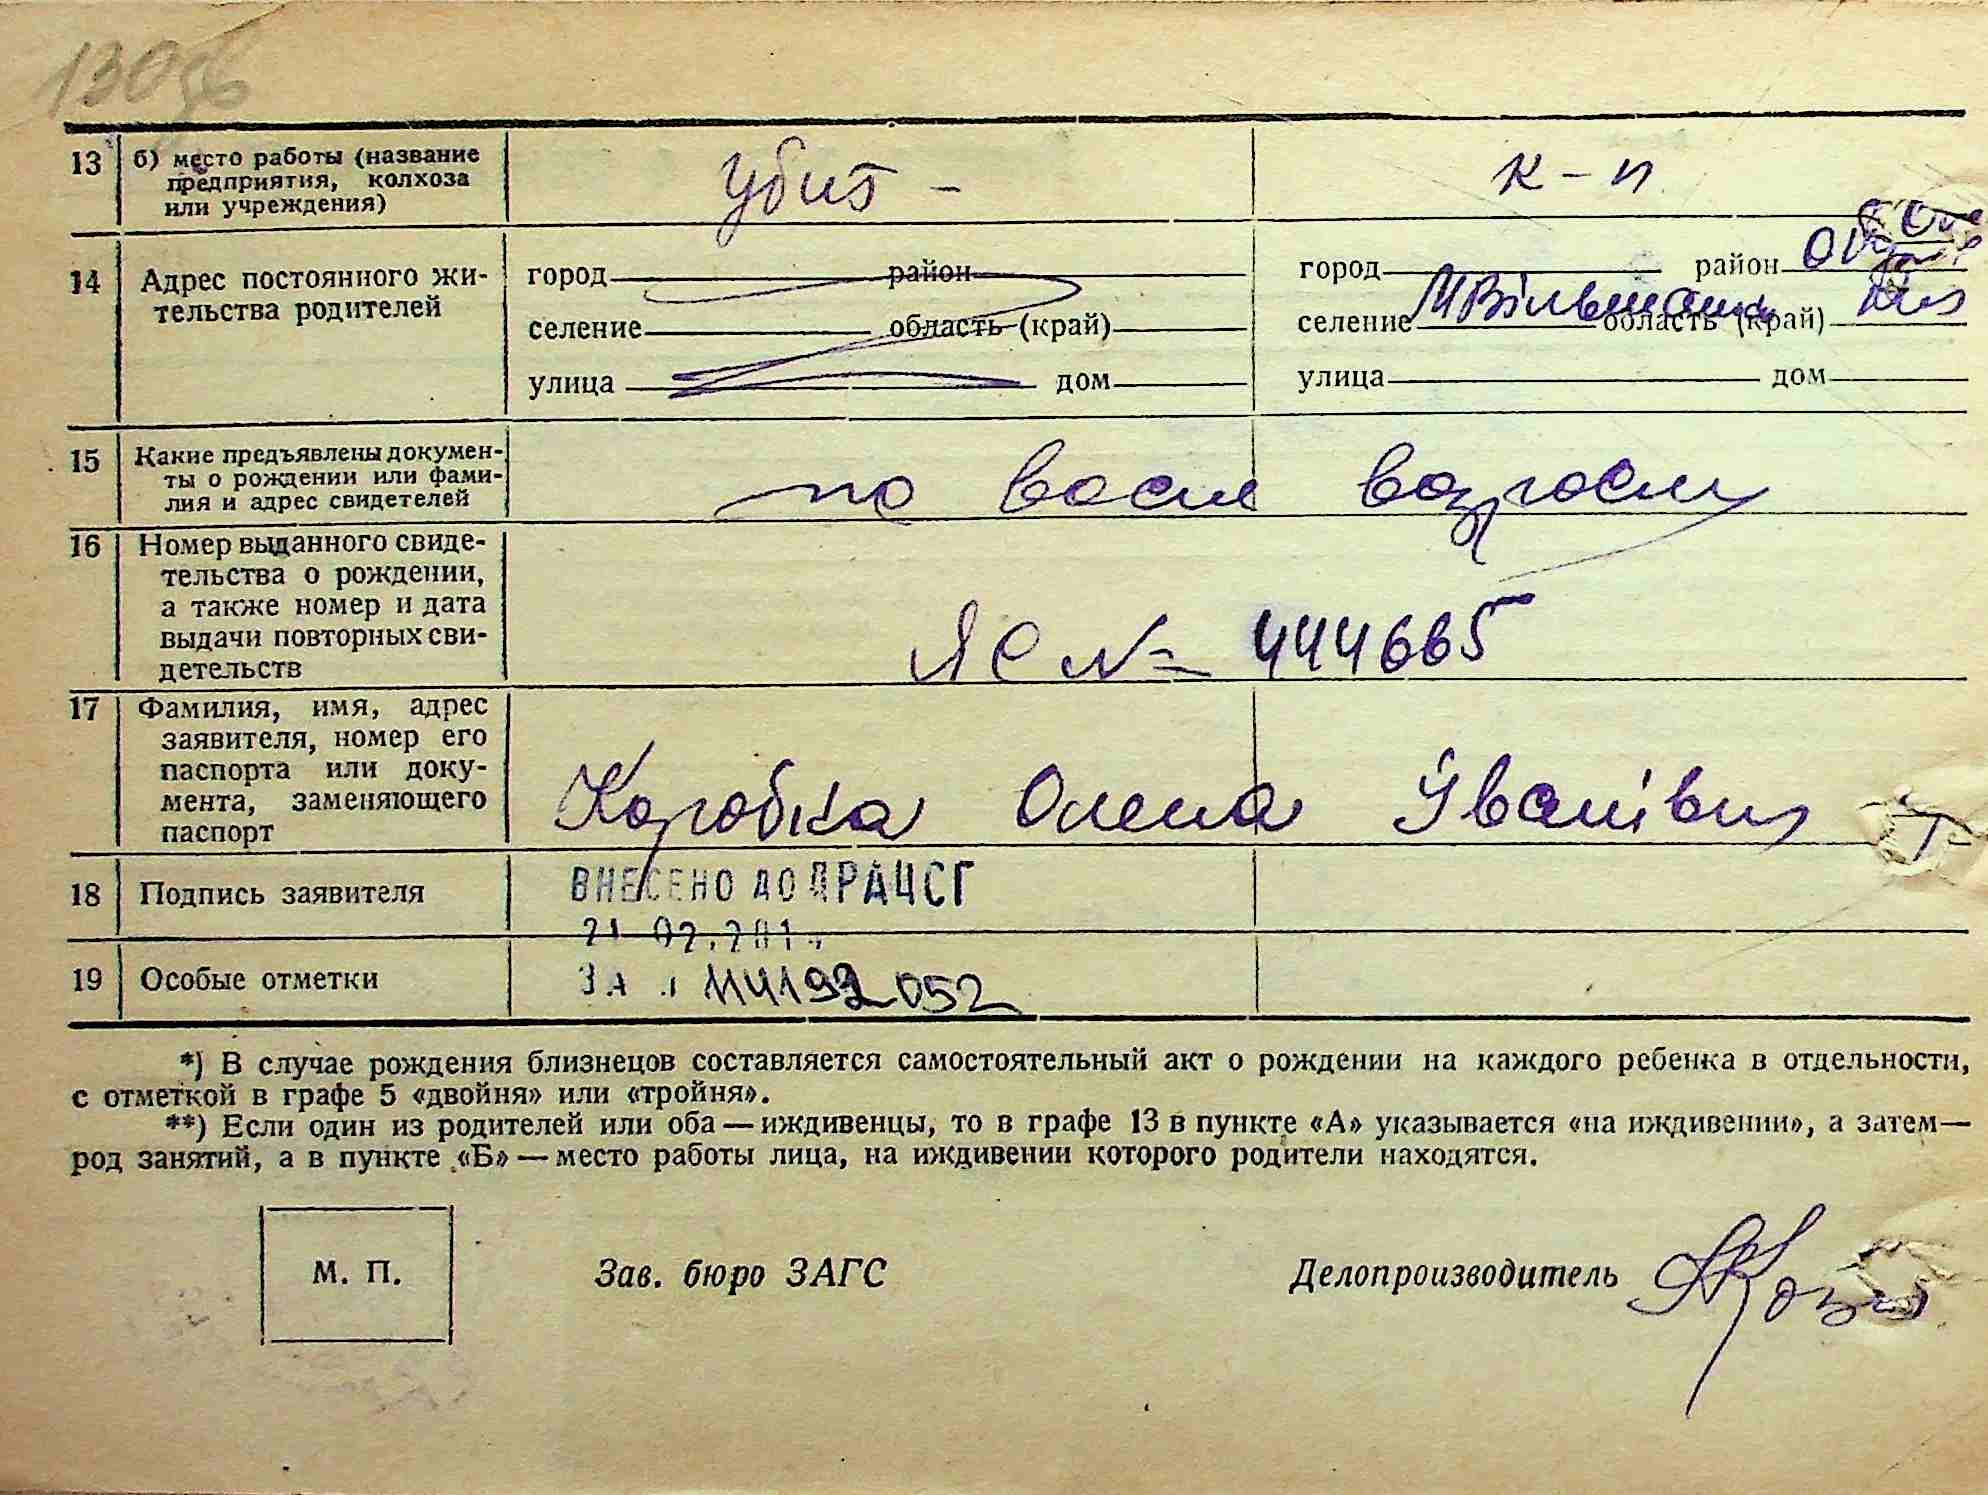 13 б) место работы (название предприятия, колхоза или учреждения) убит - к-п
14 Адрес постоянного жительства родителей
город район город район
селение область (край) селение область (край)
улица дом улица дом
15 Какие предъявлены документы о рождении или фамилия и адрес свидетелей по
16 Номер выданного свидетельства о рождении, а также номер и дата выдачи повторных свидетельств ЯС № 444665
17 Фамилия, имя, адрес заявителя, номер его паспорта или документа, заменяющего паспорт Коробка Олена Іванівна
18 Подпись заявителя ВНЕСЕНО ДО ДРАЦСГ
19 Особые отметки ЗА
*) В случае рождения близнецов составляется самостоятельный акт о рождении на каждого ребенка в отдельности,
с отметкой в графе 5 «двойня» или «тройня».
**) Если один из родителей или оба — иждивенцы, то в графе 13 в пункте «А» указывается «на иждивении», а затем—
род занятий, а в пункте «Б» — место работы лица, на иждивении которого родители находятся.
М. П. Зав. бюро ЗАГС Делопроизводитель